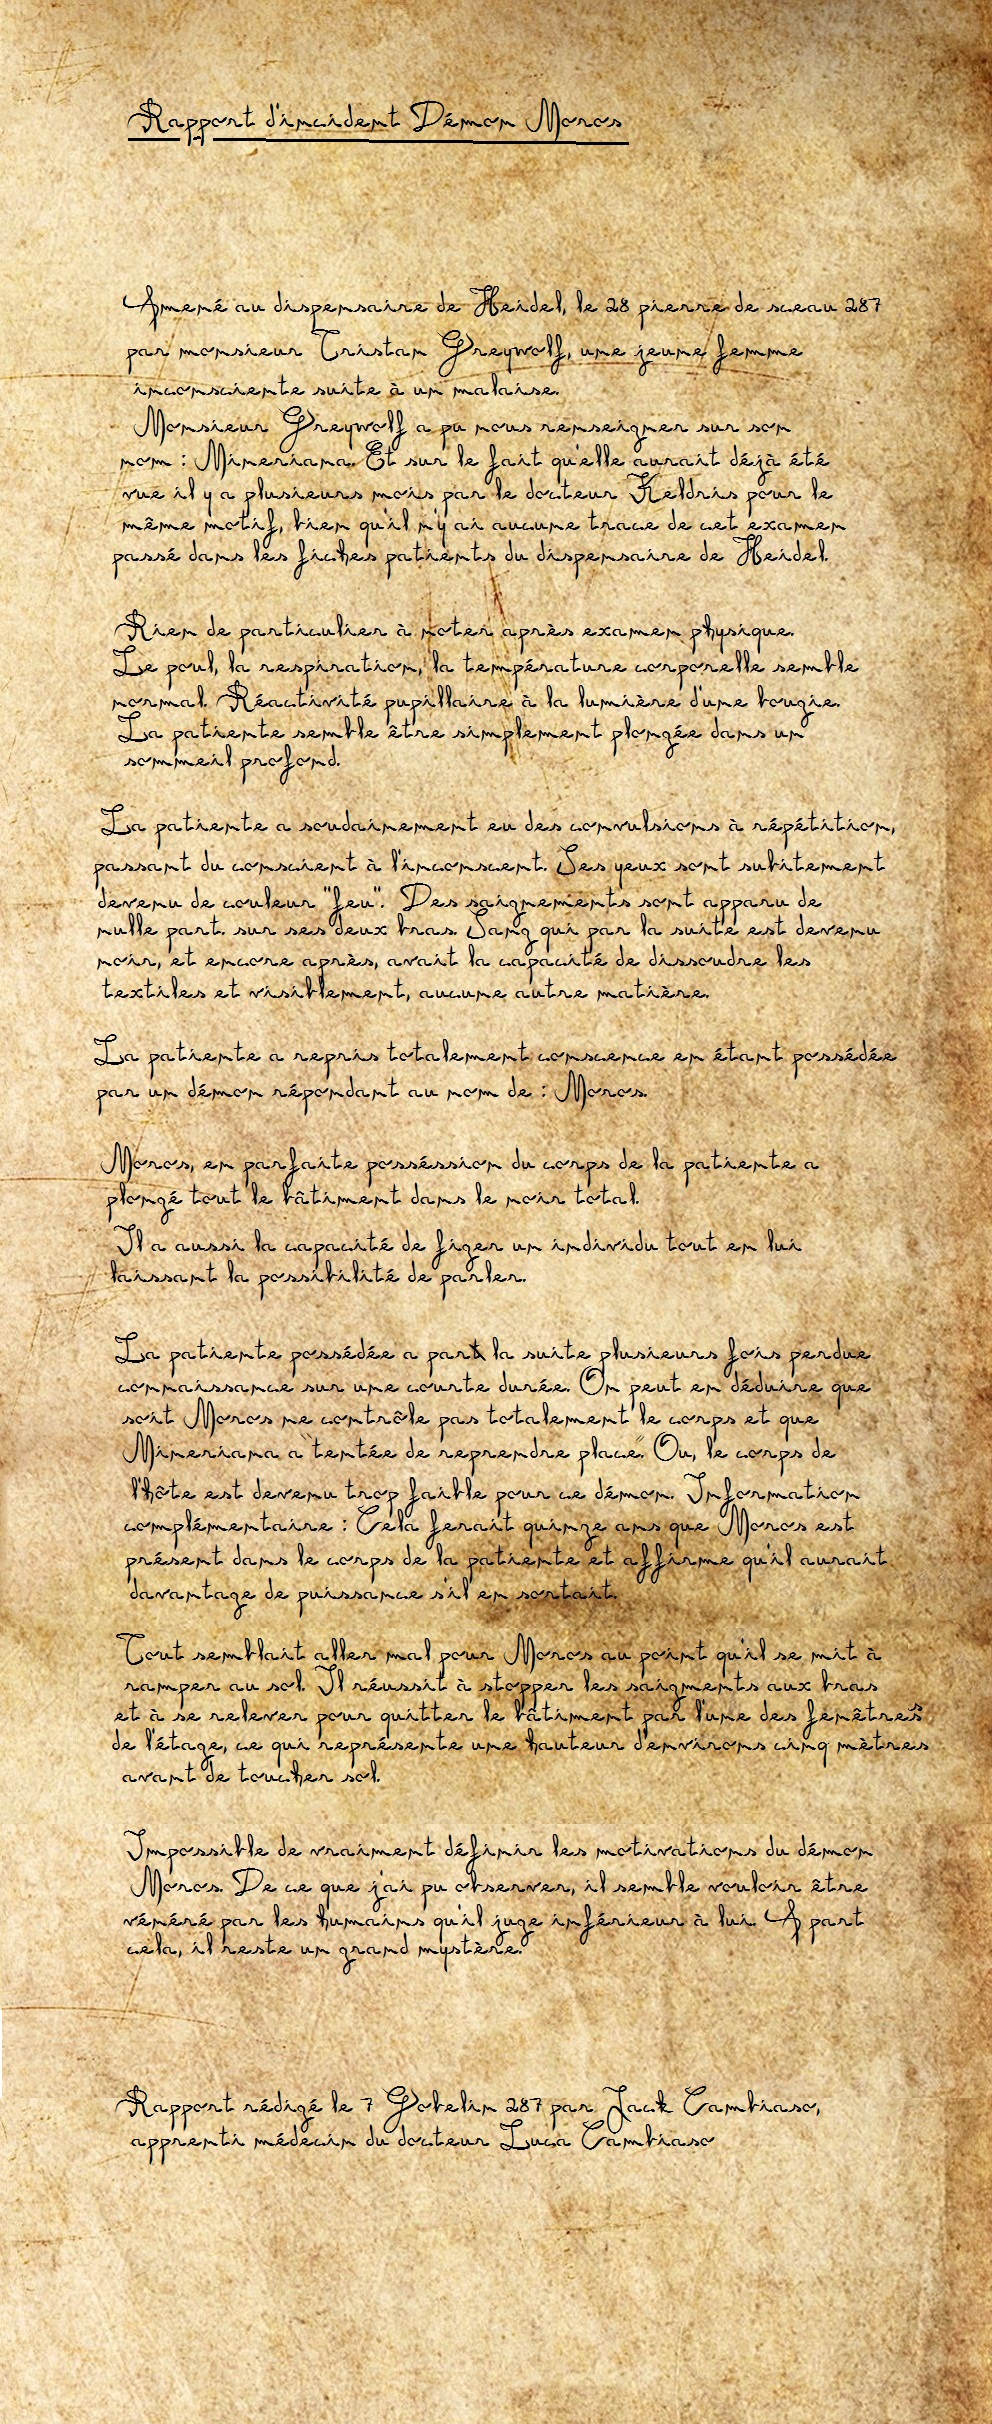 Rapport d'incident Démon Moros
Amené au dispensaire de Heidel, le 28 pierre de sceau 287
par monsieur Tristan Greywolf, une jeune femme
inconsciente suite à un malaise.
Monsieur Greywolf a pu nous renseigner sur son
nom : Mineriana. Et sur le fait qu'elle aurait déjà été
vue il y a plusieurs mois par le docteur Keldris pour le
même motif, bien qu'il n'y ai aucune trace de cet examen
passé dans les fiches patients du dispensaire de Heidel.
Rien de particulier à noter après examen physique.
Le poul, la respiration, la température corporelle semble
normal. Réactivité pupillaire à la lumière d'une bougie.
La patiente semble être simplement plongée dans un
sommeil profond.
La patiente a soudainement eu des convulsions à répétition,
passant du conscient à l'inconscent. Ses yeux sont subitement
devenu de couleur "feu". Des saignements sont apparu de
nulle part. sur ses deux bras. Sang qui par la suite est devenu
noir, et encore après, avait la capacité de dissoudre les
textiles et visiblement, aucune autre matière.
La patiente a repris totalement conscence en étant possédée
par un démon répondant au nom de : Moros.
Moros, en parfaite posséssion du corps de la patiente a
plongé tout le bâtiment dans le noir total.
Il a aussi la capacité de figer un individu tout en lui
laissant la possibilité de parler.
La patiente possédée a part la suite plusieurs fois perdue
connaissance sur une courte durée. On peut en déduire que
soit Moros ne contrôle pas totalement le corps et que
Mineriana a "tentée de reprendre place" Ou, le corps de
l'hôte est devenu trop faible pour ce démon. Information
complémentaire : Cela ferait quinze ans que Moros est
présent dans le corps de la patiente et affirme qu'il aurait
davantage de puissance s'il en sortait.
Tout semblait aller mal pour Moros au point qu'il se mit à
ramper au sol. Il réussit à stopper les saigments aux bras
et à se relever pour quitter le bâtiment par l'une des fenêtres
de l'étage, ce qui représente une hauteur d'environs cinq mètres
avant de toucher sol.
Impossible de vraiment définir les motivations du démon
Moros. De ce que j'ai pu observer, il semble vouloir être
vénéré par les humains qu'il juge inférieur à lui. A part
cela, il reste un grand mystère.
Rapport rédigé le 7 Gobelin 287 par Jack Cambiaso,
apprenti médecin du docteur Luca Cambiaso